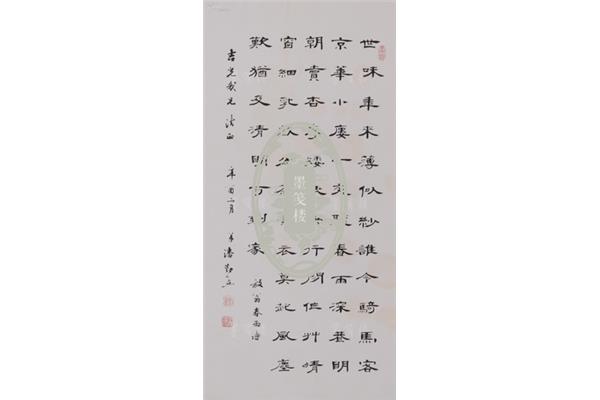 世味年來薄似紗誰令騎馬客
京華小廔一夜聽春雨深巷明
朝賣杏花矮紙斜行閒作艸晴
窗細乳戲分茶素衣莫起風塵
歎猶及清明可到家 放翁春雨詩
我兄 法正 辛酉二月 弟潘勤孟
墨笺楼